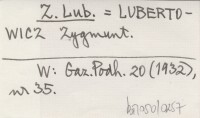 Z. Lub. = LUBERTO-
WICZ Zygmunt.
W: Gaz. Podh. 20 (1932),
nr 35.